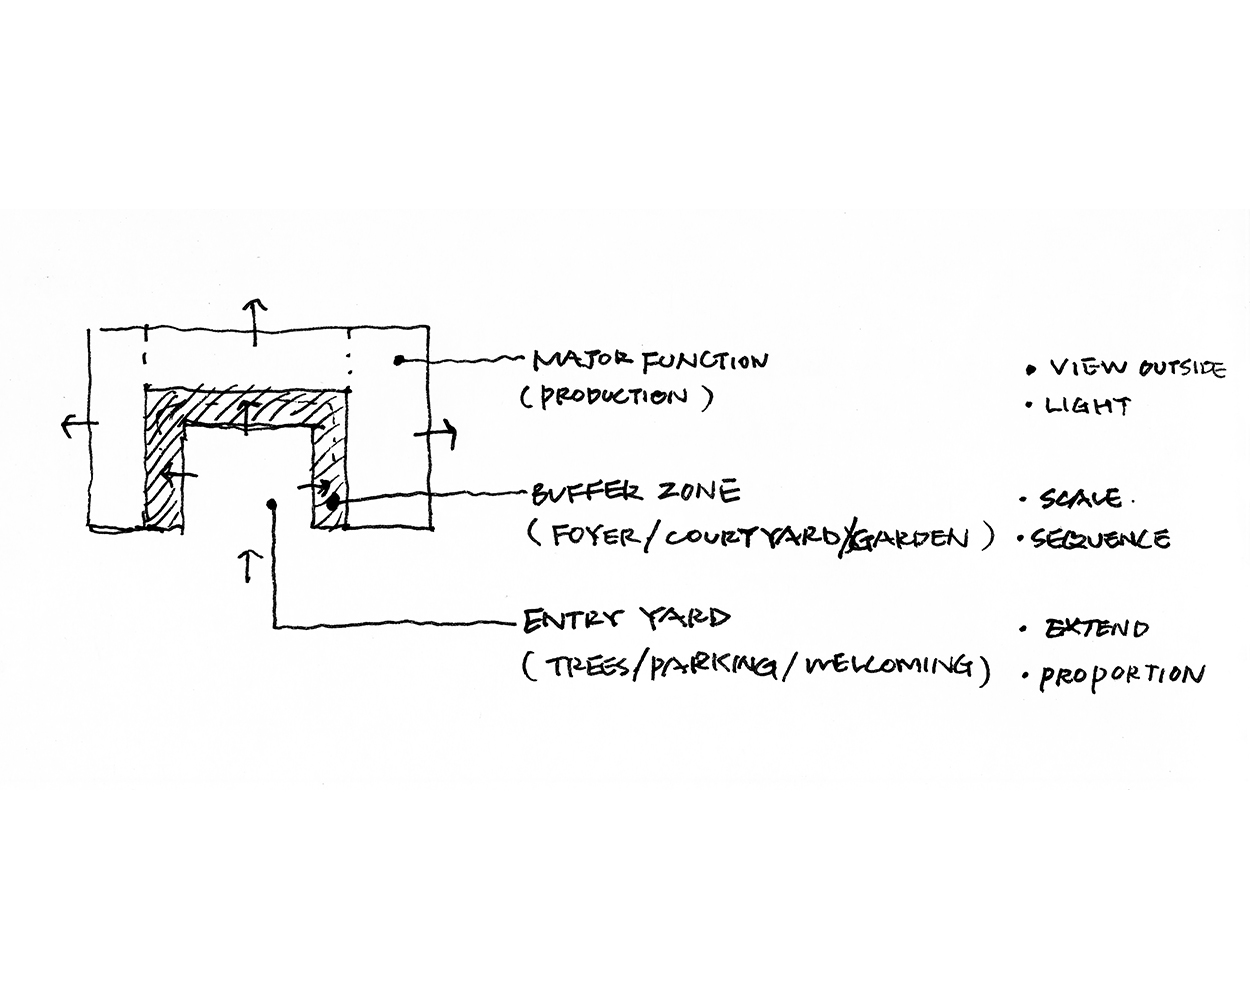 MAJOR FUNCTION
(PRODUCTION)
• VIEW OUTSIDE
• LIGHT
BUFFER ZONE
(FOYER/COURTYARD/GARDEN)
• SCALE.
• SEQUENCE
ENTRY YARD
(TREES/PARKING/WELCOMING)
• EXTEND
• PROPORTION